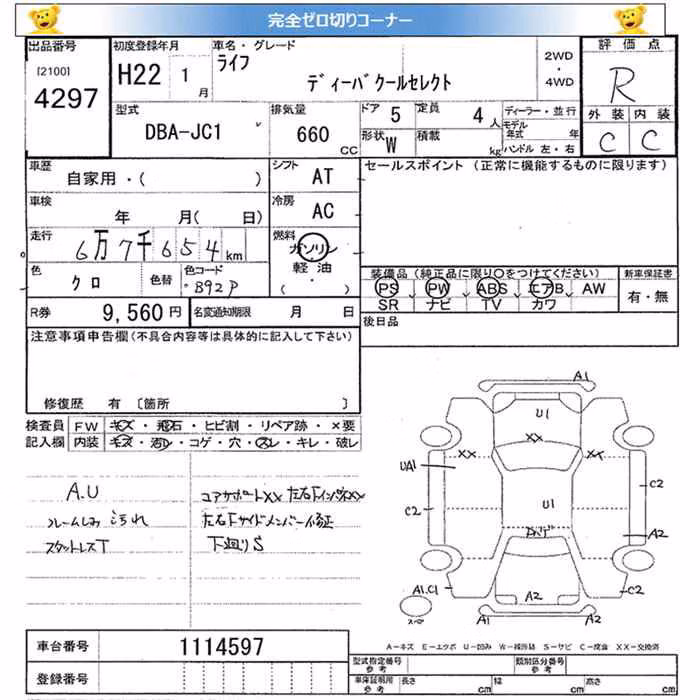 完全ゼロ切りコーナー
出品番号 初度登録年月 車名・グレード 2WD ・ 4WD 評価点
[2100] 4297 H22 1月 ライフ ディーバ クールセレクト R
型式 DBA-JC1 排気量 660 CC ドア 5 定員 4人 ディーラー・並行 外装 内装
形状 W 積載 kg モデル年式 年 ハンドル 左・右 C C
車歴 自家用・( ) シフト AT セールスポイント (正常に機能するものに限ります)
車検 年 月( 日) 冷房 AC
走行 6万7千654km 燃料 ガソリン 軽油 ( )
色 クロ 色替 色コード B92P 装備品(純正品に限り○をつけてください) 新車保証書
PS PW ABS エアB AW 有・無
SR ナビ TV カワ
R券 9,560円 名変通知期限 月 日 後日品
注意事項申告欄(不具合内容等は具体的に記入して下さい)
修復歴 有 〔箇所 〕
検査員 FW キズ・飛石・ヒビ割・リペア跡・×要
記入欄 内装 キズ・汚レ・コゲ・穴・スレ・キレ・破レ
A.U コアサポートXX 左右FインパネXX
フレームしみ 汚れ 左右Fサイドメンバー修正
スタットレスT 下廻りS
A1
U1
XX XX XX
UA1 U1 C2
C2 A2
A1.C1 A2 C2
A1 A2
A−キズ E−エクボ U−凹み W−補修跡 S−サビ C−腐食 XX−交換済
車台番号 1114597 型式指定番号 参考 類別区分番号 参考
登録番号 車庫証明用 参考 長さ cm 幅 cm 高さ cm